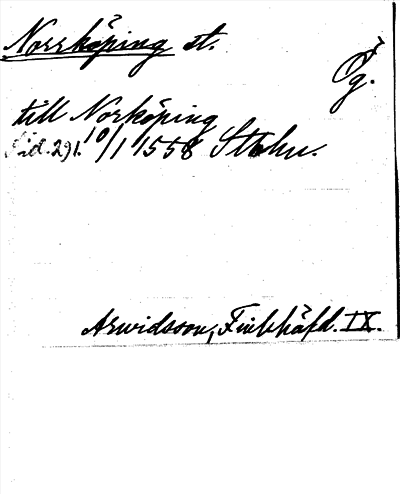 Norrköping st.
Ög.
till Norköping
Sid. 291. 10/1 1558 Sthlm.
Arwidsson, Finl. häfd. IX.